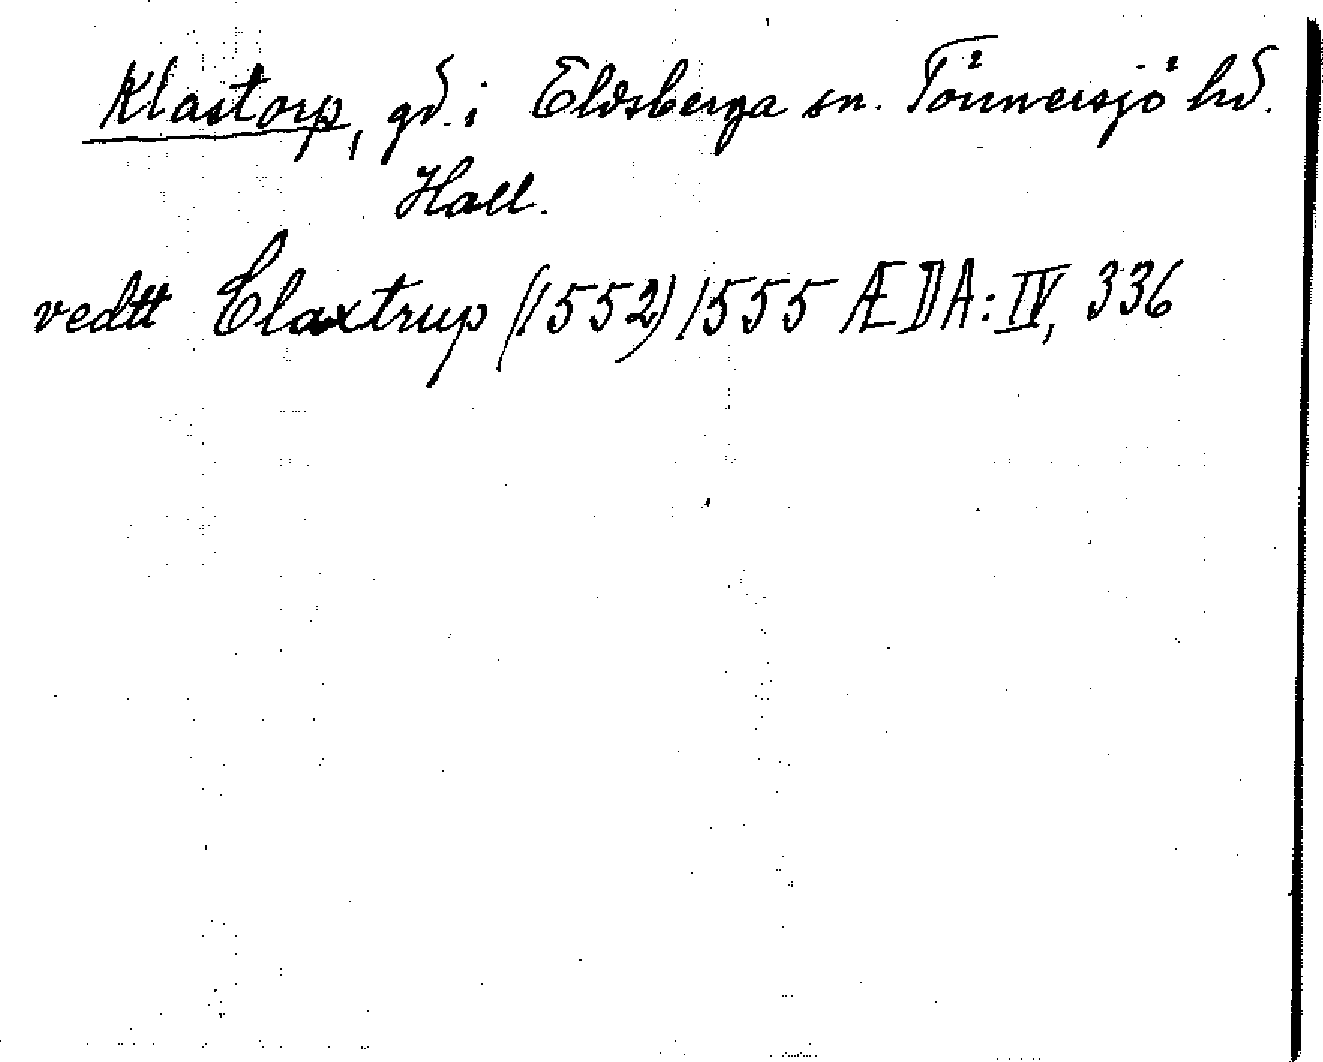 Klastorp, gd. i Eldsberga sn. Tönnersjö hd.
Hall.
vedtt Claxtrup (1552) 1555 ÆDA: IV, 336